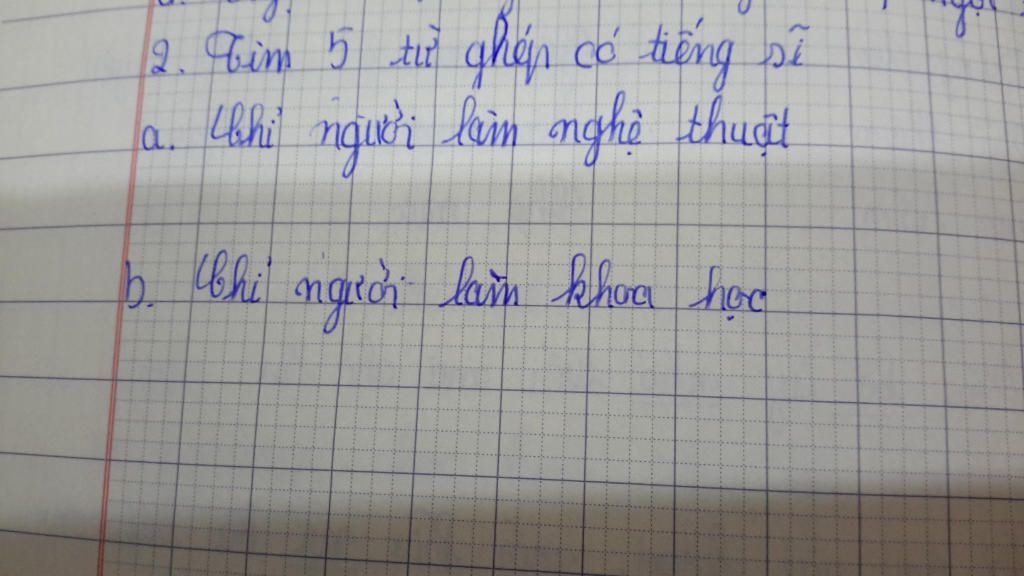 2. Tìm 5 từ ghép có tiếng sĩ
a. Chỉ người làm nghệ thuật
b. Chỉ người làm khoa học